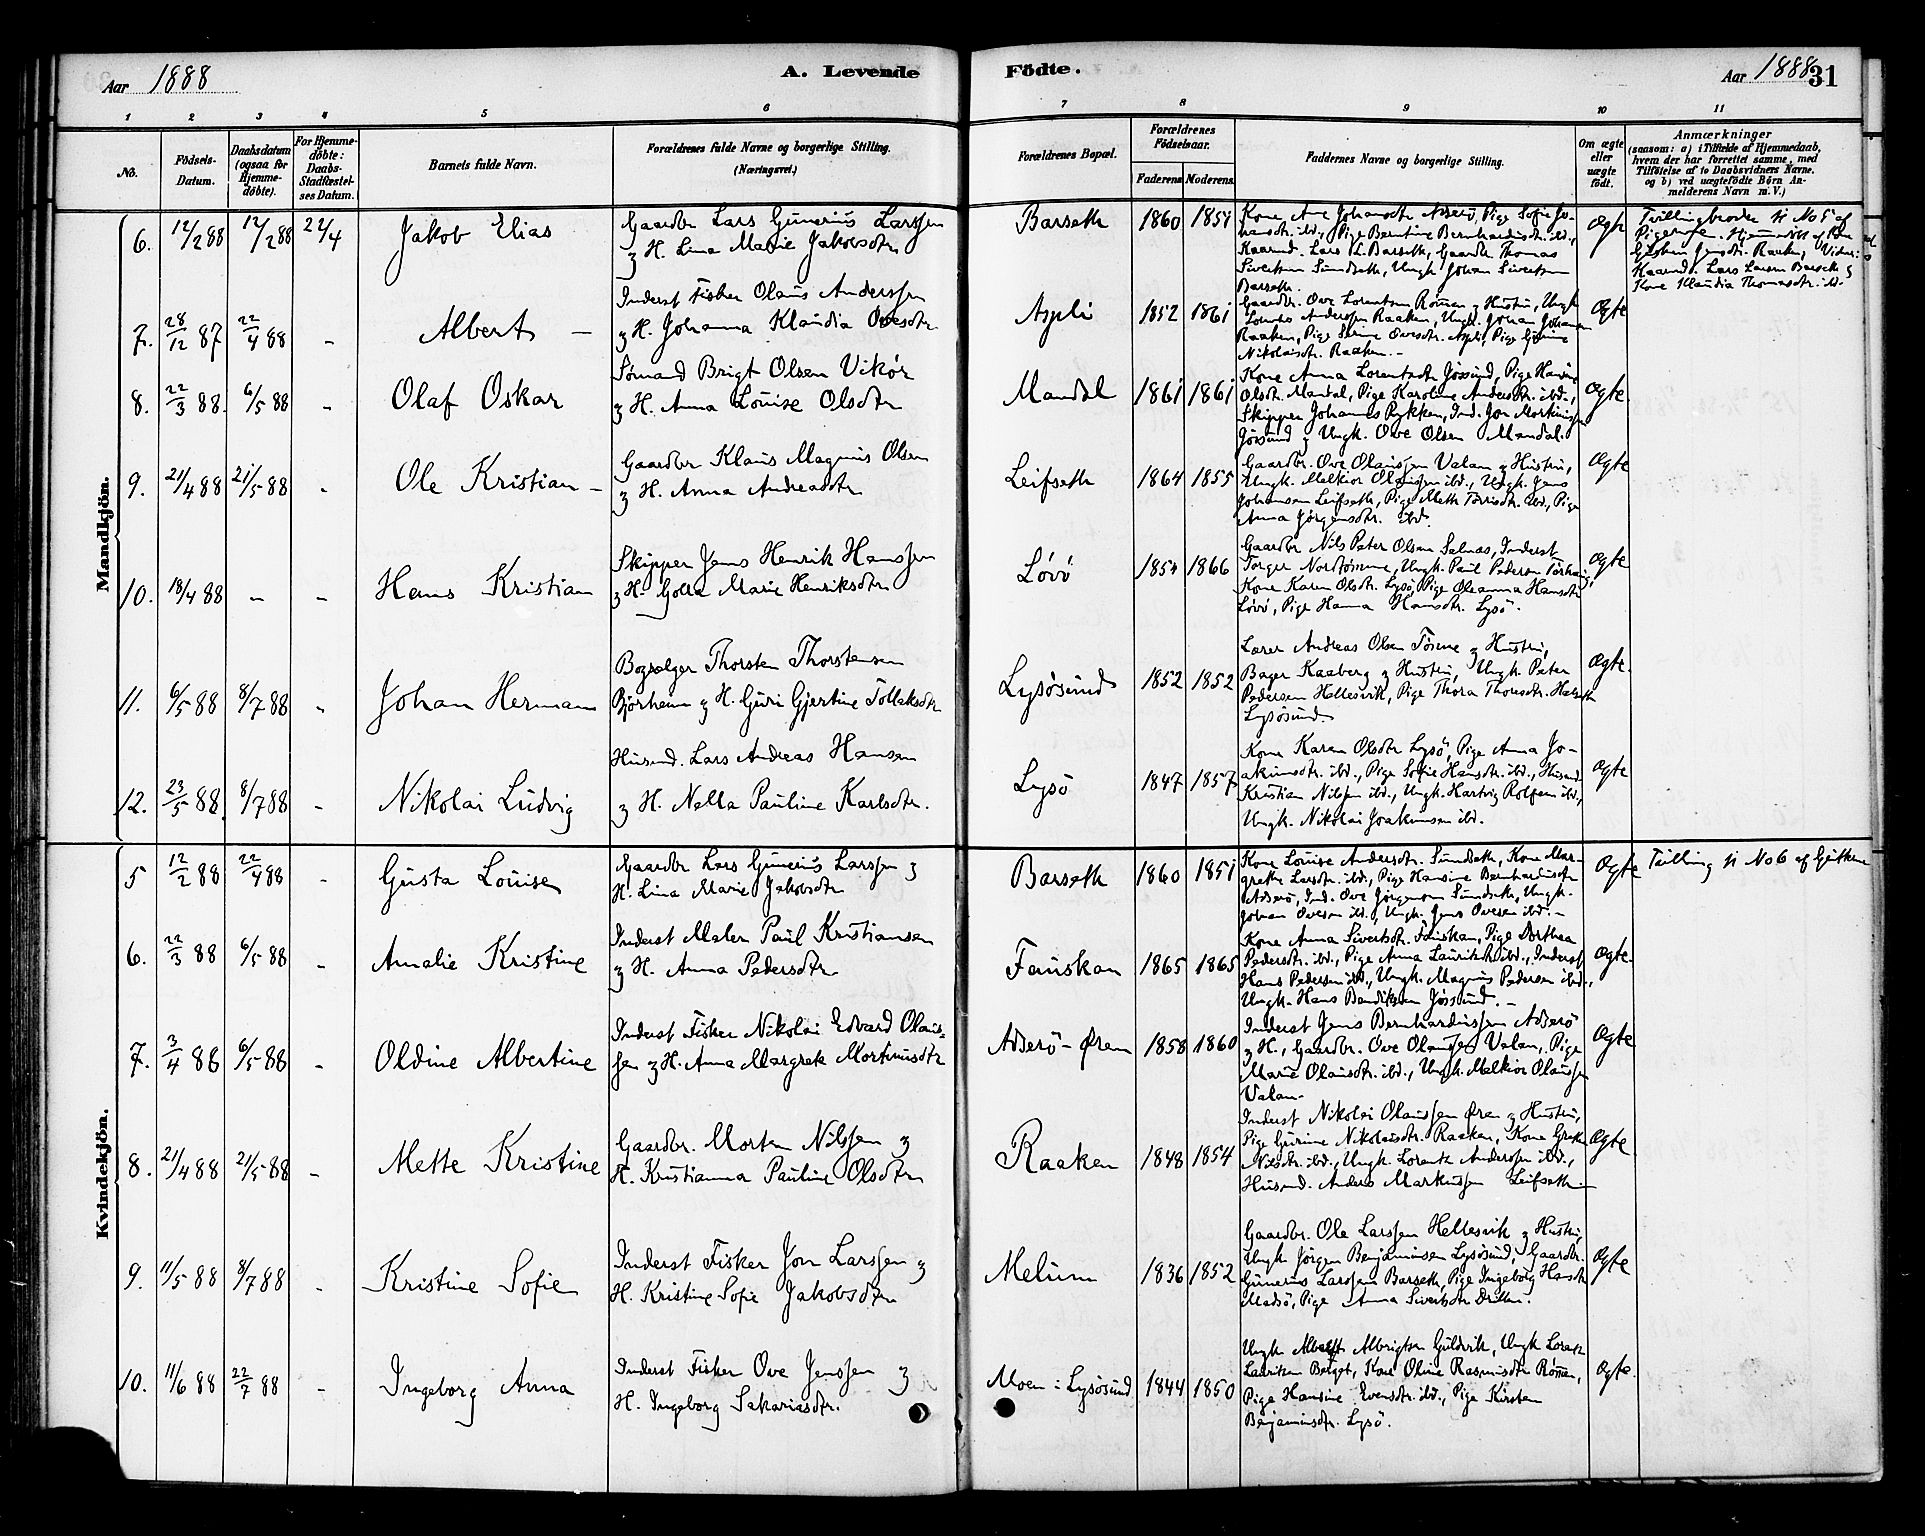 Aar 1888
A. Levende
Födte.
Aar 1888
31
1 2 3 4 5 6 7 8 9 10 11
No.
Födsels-Datum.
Daabsdatum (ogsaa for Hjemme-döbte).
For Hjemme-döbte: Daabs-Stadfæstel-ses Datum.
Barnets fulde Navn.
Forældrenes fulde Navne og borgerlige Stilling.
(Næringsvei.)
Forældrenes Bopæl.
Forældrenes Födselsaar.
Faderens Moderens
Faddernes Navne og borgerlige Stilling.
Om ægte eller uægte födt.
Anmærkninger
(saasom: a) i Tilfælde af Hjemmedaab,
hvem der har forrettet samme, med
Tilföielse af to Daabsvidners Navne.
og b) ved uægtefödte Börn An-
melderens Navn m. V.)
Mandkjön.
6. 12/2 88 12/2 88 22/4 Jakob Elias
Gaardbr Lars Gunerius Larssen
& H. Lina Marie Jakobsdtr
Barseth 1860 1851
Kone Ane Johansdtr Adserö, Pige Sofie Jo-
hansdtr. ibd., Pige Berntine Bernhardusdtr. ibd.,
Kaarmd. Lars L. Barseth, Gaardbr Thomas
Sivertsen Sundseth, Ungk. Johan Sivertsen
Barseth.
Ægte
Tvillingbroder til No 5 af
Pigerne. Hjemmedøbt af
Kaarmd. Lars Larsen Barseth &
Kone Klaudia Thomasdtr. ibd.
7. 28/12 87 22/4 88 - Albert -
Inderst Fisker Olaus Anderssen
& H. Johanna Klaudia Ovesdtr
Aspli 1852 1861
Gaardbr. Ove Lorentsen Römen & Hustru, Ungk
Lorents Anderssen Raaken, Ungk. Johan Johansen
Raaken, Pige Ovesdtr. Aspli, Pige Gurine
Nikolaisdtr. Raaken. -
Ægte
8. 22/3 88. 6/5 88 - Olaf Oskar
Sömand Brigt Olsen Vikör
& H. Anna Louise Olsdtr
Mandal 1861 1861
Kone Anna Lorentsdtr Jøssund, Pige Hansine
Olsdtr. Mandal, Pige Karoline Andersdtr. ibd.,
Skipper Johannes Rykken, Ind. Jon Martinussen
Jøssund & Ungk. Ove Olsen Mandal.
Ægte.
9. 21/4 88 21/5 88 - Ole Kristian -
Gaardbr Klaus Magnus Olsen
& H. Anna Andreasdtr
Leifseth 1864 1855
Gaardbr. Ove Olaussen Valan & Hustru,
Ungk. Melkior Olaussen ibd., Ungk. Jens
Johansen Leifseth, Pige Meth Torrisdtr. ibd., Pige
Anna Jørgensdtr. ibd.
Ægte
10. 18/4 88 - - Hans Kristian
Skipper Jens Henrik Hanssen
& H. Golla Marie Henriksdtr
Lövö 1854 1866
Gaardbr Nils Peter Olsen Selnæs, Inderst
Torger Nordtömme, Ungk. Paul Pedersen Tarhaug,
Kone Karen Olsdtr. Lysö, Pige Oleanna Hansdtr
Lövö, Pige Hanna Hansdtr. Lysö.
Ægte
11. 6/5 88 8/7 88 - Johan Herman
Bogsælger Thorsten Thorstensen
Bjørheim & H. Guri Gjertine Tollaksdtr
Lysösund 1852 1852
Lærer Andreas Olsen Tömme & Hustru,
Bager Kaaberg & Hustru, Ungk. Peter
Pedersen Hellesvik, Pige Thora Thoresdtr. Halseth
Lysösund.
Ægte.
12. 23/5 88. 8/7 88 - Nikolai Ludvig
Husmd. Lars Andreas Hansen
& H. Nella Pauline Karlsdtr.
Lysö 1847 1857
Kone Karen Olsdtr Lysö, Pige Anna Jo-
akimsdtr. ibd., Pige Sofie Hansdtr. ibd., Husmd
Kristian Nilssen ibd., Ungk. Hartvig Rolfsen ibd.,
Ungk. Nikolai Joakimsen ibd.
Ægte
Kvindekjön.
5 12/2 88 22/4 88 - Gusta Louise
Gaardbr Lars Gunerius Larssen &
H. Lina Marie Jakobsdtr
Barseth 1860 1851
Kone Louise Andersdtr. Sundseth, Kone Mar-
grethe Larsdtr. ibd., Pige Hansine Bernhardusdtr
Adserö, Ind. Ove Jörgensen Sundseth, Ungk.
Johan Ovesen ibd., Ungk. Jens Ovesen ibd. -
Ægte
Tvilling til No 6 af Gutterne
6. 22/3 88 6/5 88 - Amalie Kristine
Inderst Maler Paul Kristiansen
& H. Anna Pedersdtr
Fauskan 1865 1865
Kone Anna Sivertsdtr. Fauskan, Pige Dorthea
Pedersdtr. ibd., Pige Anna Lauritsdtr. ibd., Inderst
Hans Pedersen ibd., Ungk. Magnus Pedersen ibd.,
Ungk. Hans Bendiksen Jøssund. -
Ægte.
7. 3/4 88 6/5 88 - Oldine Albertine
Inderst Fisker Nikolai Edvard Olaus-
sen & H. Anna Margrete Mortinusdtr
Adserö-Øren 1858 1860
Inderst Jens Bernhardussen Adserö
& H., Gaardbr. Ove Olaussen Valan, Pige
Marie Olausdtr. ibd., Ungk. Melkior Olaussen
Valan.
Ægte
8. 21/4 88 21/5 88 - Mette Kristine
Gaardbr. Morten Nilssen &
H. Kristianna Pauline Olsdtr
Raaken 1848 1854
Inderst Nikolai Olaussen Øren & Hustru,
Pige Gurine Nikolaisdtr. Raaken, Kone Grete
Nilsdtr. ibd., Ungk. Lorents Anderssen ibd.,
Husmd. Anders Markussen Leifseth
Ægte
9. 11/5 88 8/7 88 - Kristine Sofie
Inderst Fisker Jon Larssen &
H. Kristine Sofie Jakobsdtr
Melum 1836 1852
Gaardbr. Ole Larssen Hellesvik & Hustru,
Ungk Jörgen Benjaminsen Lysösund, Gaardbr.
Gunerius Larssen Barseth, Pige Ingeborg Hansdtr
Madsö, Pige Anna Sivertsdtr.
Ægte
10. 11/6 88 22/7 88 - Ingeborg Anna
Inderst Fisker Ove Jenssen &
H. Ingeborg Sakariasdtr.
Moen i Lysösund 1844 1850
Ungk Albrigtsen Guldvik, Ungk Lorents
Kone Oline Rasmusdtr Römen,
Pige Hansine Evensdtr. ibd., Pige Kirsten
Benjaminsdtr. Lysö.
Ægte.